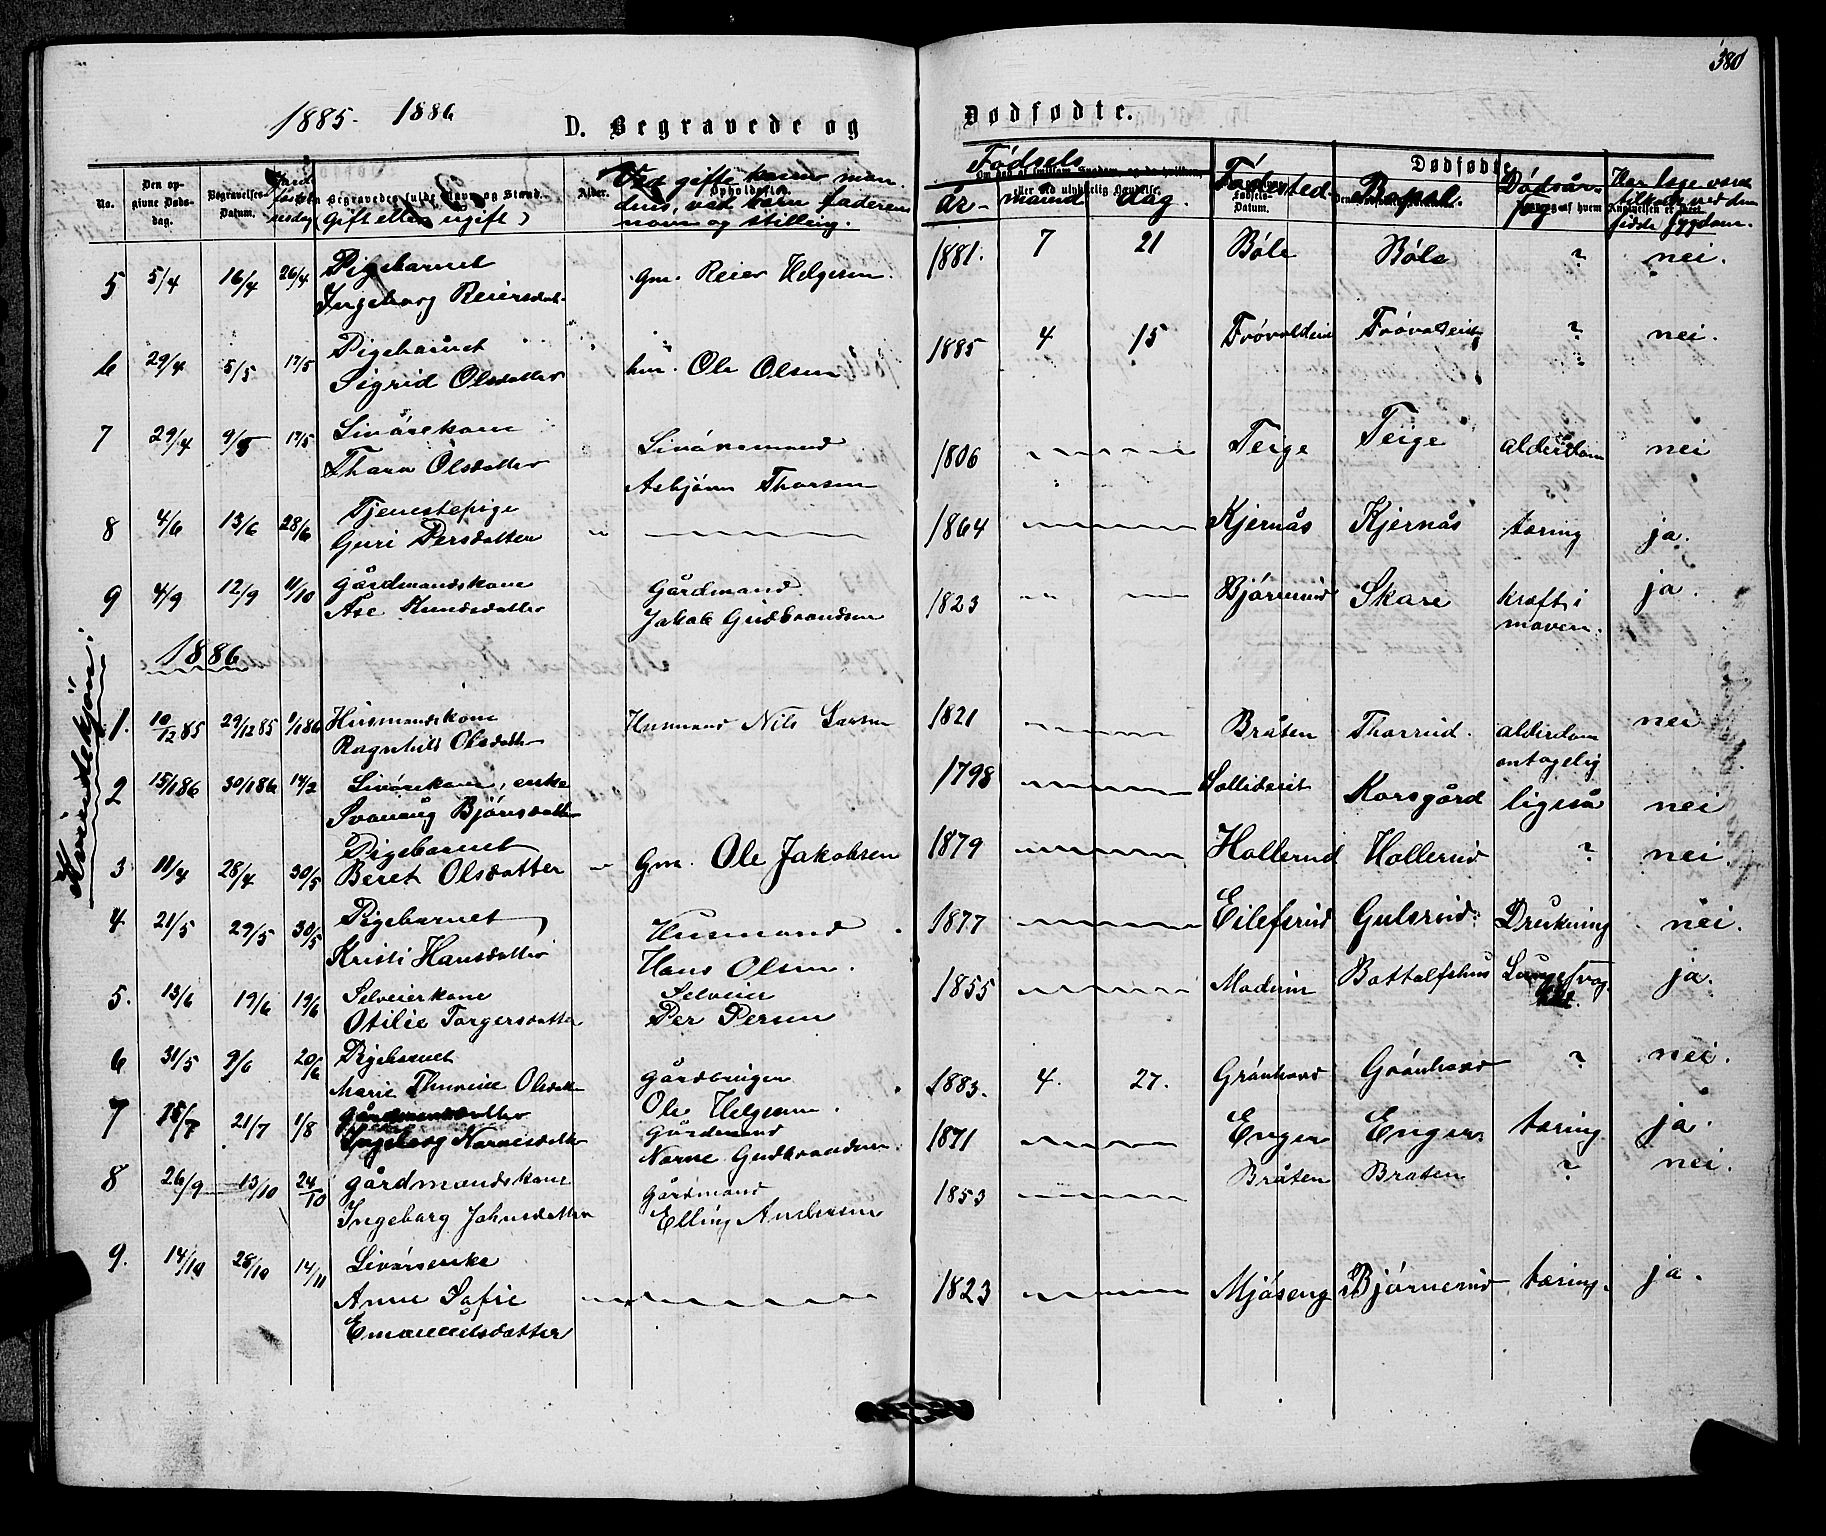 380
1885 - 1886
D. Begravede og Dødfødte.
No.
Den opgivne Dødsdag.
Begravelses-Datum.
Begravedes fulde Navn og Stand.
(Gift eller ugift)
Alder.
Ved gifte koner mandens, ved børn faderens navn og stilling.
Fødsels
år - maaned dag.
Fødested
Bopæl.
Dødsårsag
Har læge været tilkaldt ved den sidste sygdom.
Dødfødte
Kvindekjön:
5 5/4 16/4 26/4 Pigebarnet gm. Reier Helgesen 1881. 7 21 Bøle Bøle ? nei.
Ingeborg Reiersdat-
6 29/4 5/5 17/5 Pigebarnet hm. Ole Olsen 1885 4 15 ? nei.
Sigrid Olsdatter
7 29/4 9/5 17/5 Livårskone Livårsmand 1806 Teige Teige alderdom nei
Olsdatter Asbjørn Thorsen
8 4/6 13/6 28/6 Tjenestepige 1864 Kjernås Kjernås tæring ja.
Guri Persdatter
9 4/9 12/9 11/10 gårdmandskone Gårdmand 1823 Bjørnerud Skare kræft i ja.
Åse Knudsdatter Jakob Gudbrandsen maven.
1886
1. 10/12 85 29/12 85 1/1 86 Husmandskone Husmand Nils Larsen 1821 Bråten Thorrud. alderdom nei
Ragnhild Olsdatter antagelig
2 15/1 86 30/1 86 14/2 Livårskone, enke 1798 Korsgård ligeså nei
Svanaug Bjørnsdatter
3 11/4 28/4 30/5 Pigebarnet Gm. Ole Jakobsen 1879 Hollerud Hollerud ? nei
Beret Olsdatter
4 21/5 29/5 30/5 Pigebarnet Husmand 1877 Eilefsrud Gulsrud. Drukning nei.
Kristi Hansdatter Hans Olsen.
5. 13/6 19/6 19/6 Selveierkone Selveier 1855 Modum ja.
Otilie Torgersdatter Per Persen
6 31/5 9/6 20/6 Pigebarnet Gårdbruger 1883. 4. 27. Grånhovd Grånhovd ? nei.
Marie Thurine Olsdatt Ole Helgesen.
7 15/7 21/7 1/8 gårdmandsdatter Gårdmand 1871 Enger Enger tæring ja.
Ingeborg Narvesdatter Narve Gudbrandsen.
8 26/9 13/10 24/10 gårdmandskone Gårdmand 1853 Bråten Bråten ? nei.
Ingeborg Johnsdatter Elling Andersen
9. 14/10 28/10 14/11 Livårsenke 1823 Mjøseng Bjørnerud tæring. ja.
Anne Sofie
Emanuelsdatter